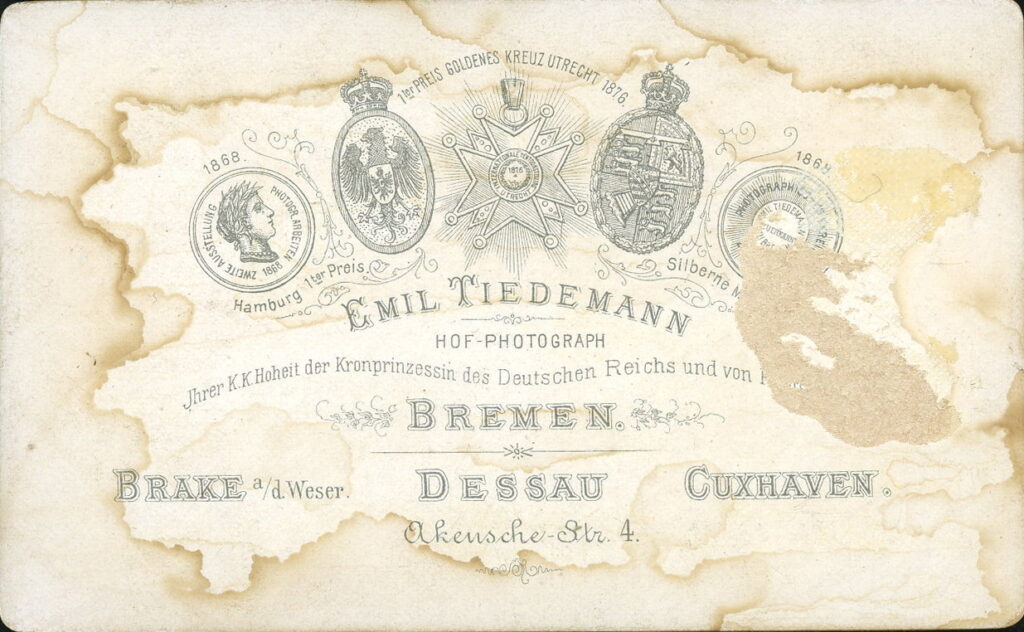 1ter PREIS GOLDENES KREUZ UTRECHT 1876.
1868.
ZWEITE AUSSTELLUNG PHOTOGR. ARBEITEN
1868
1876
1868
PHOTOGRAPHIE
EMIL TIEDEMA
Hamburg 1ter Preis
Silberne M
EMIL TIEDEMANN
HOF-PHOTOGRAPH
Jhrer K.K. Hoheit der Kronprinzessin des Deutschen Reichs und von
BREMEN.
BRAKE a/d. Weser.
DESSAU
CUXHAVEN.
Akensche-Str. 4.